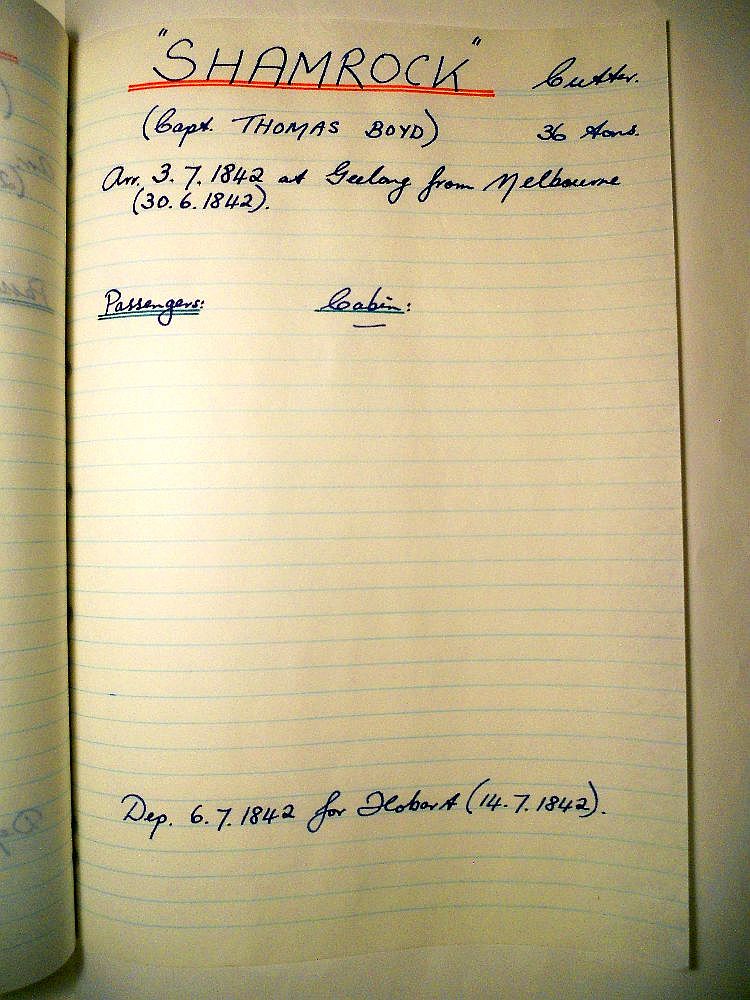 "SHAMROCK" Cutter.
(Capt. THOMAS BOYD) 36 tons.
Arr. 3.7.1842 at Geelong from Melbourne
(30.6.1842).
Passengers: Cabin:
Dep. 6.7.1842 for Hobart (14.7.1842).